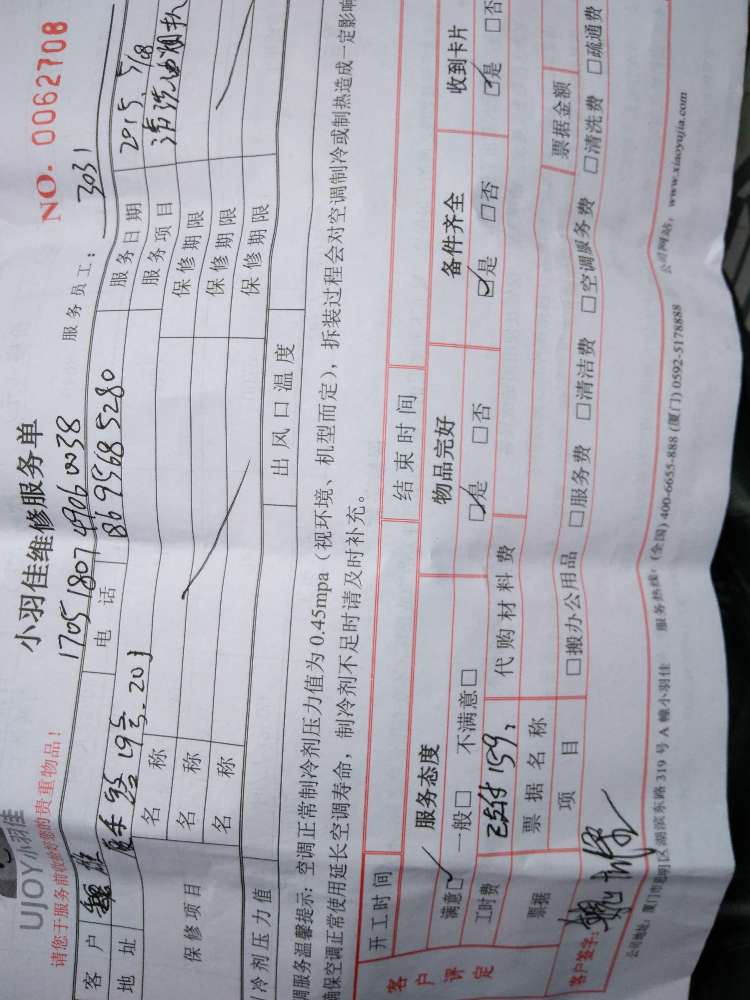 UJOY小羽佳
小羽佳维修服务单
NO. 0062708
请您于服务前收拾好您的贵重物品!
1705 1807 4906 0038
服务员工: 3031
客户 魏
电话 86 9568 5280
服务日期 2015. 5/18
地址 195-201
服务项目 清洗油烟机
保修项目
名称
保修期限
名称
保修期限
名称
保修期限
冷剂压力值
出风口温度
调服务温馨提示: 空调正常制冷剂压力值为0.45mpa(视环境、机型而定), 拆装过程会对空调制冷或制热造成一定影响
确保空调正常使用延长空调寿命, 制冷剂不足时请及时补充。
开工时间
结束时间
客户评定
服务态度
物品完好
备件齐全
收到卡片
满意☑ 一般□ 不满意□
☑是 □否
☑是 □否
☑是 □否
工时费 已付159,
代购材料费
票据
票据名称
票据金额
项目
□搬办公用品 □服务费 □清洁费 □空调服务费 □清洗费 □疏通费
客户签字: 魏
公司地址: 厦门市思明区湖滨东路319号A幢小羽佳
服务热线: (全国) 400-6655-888 (厦门) 0592-5178888
公司网站: www.xiaoyujia.com